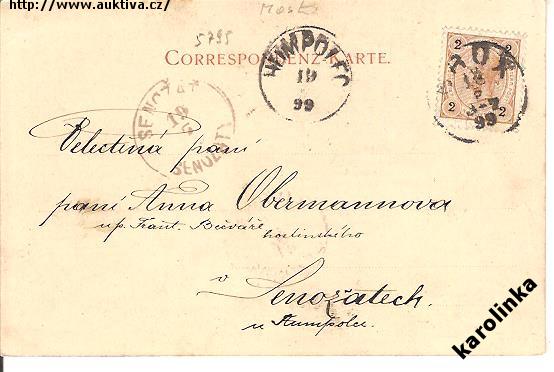 http://www.auktiva.cz/
5795
Most
CORRESPONDENZ-KARTE.
HUMPOLEC
19
99
2 2
2 2
BRÜX
99
SENOŽAT
19
SENOŽATY
Velectěná paní
paní Anna Obermannova
u p. Frant. Bečváře
hostinského
v
Senožatech.
u Humpolce.
karolinka